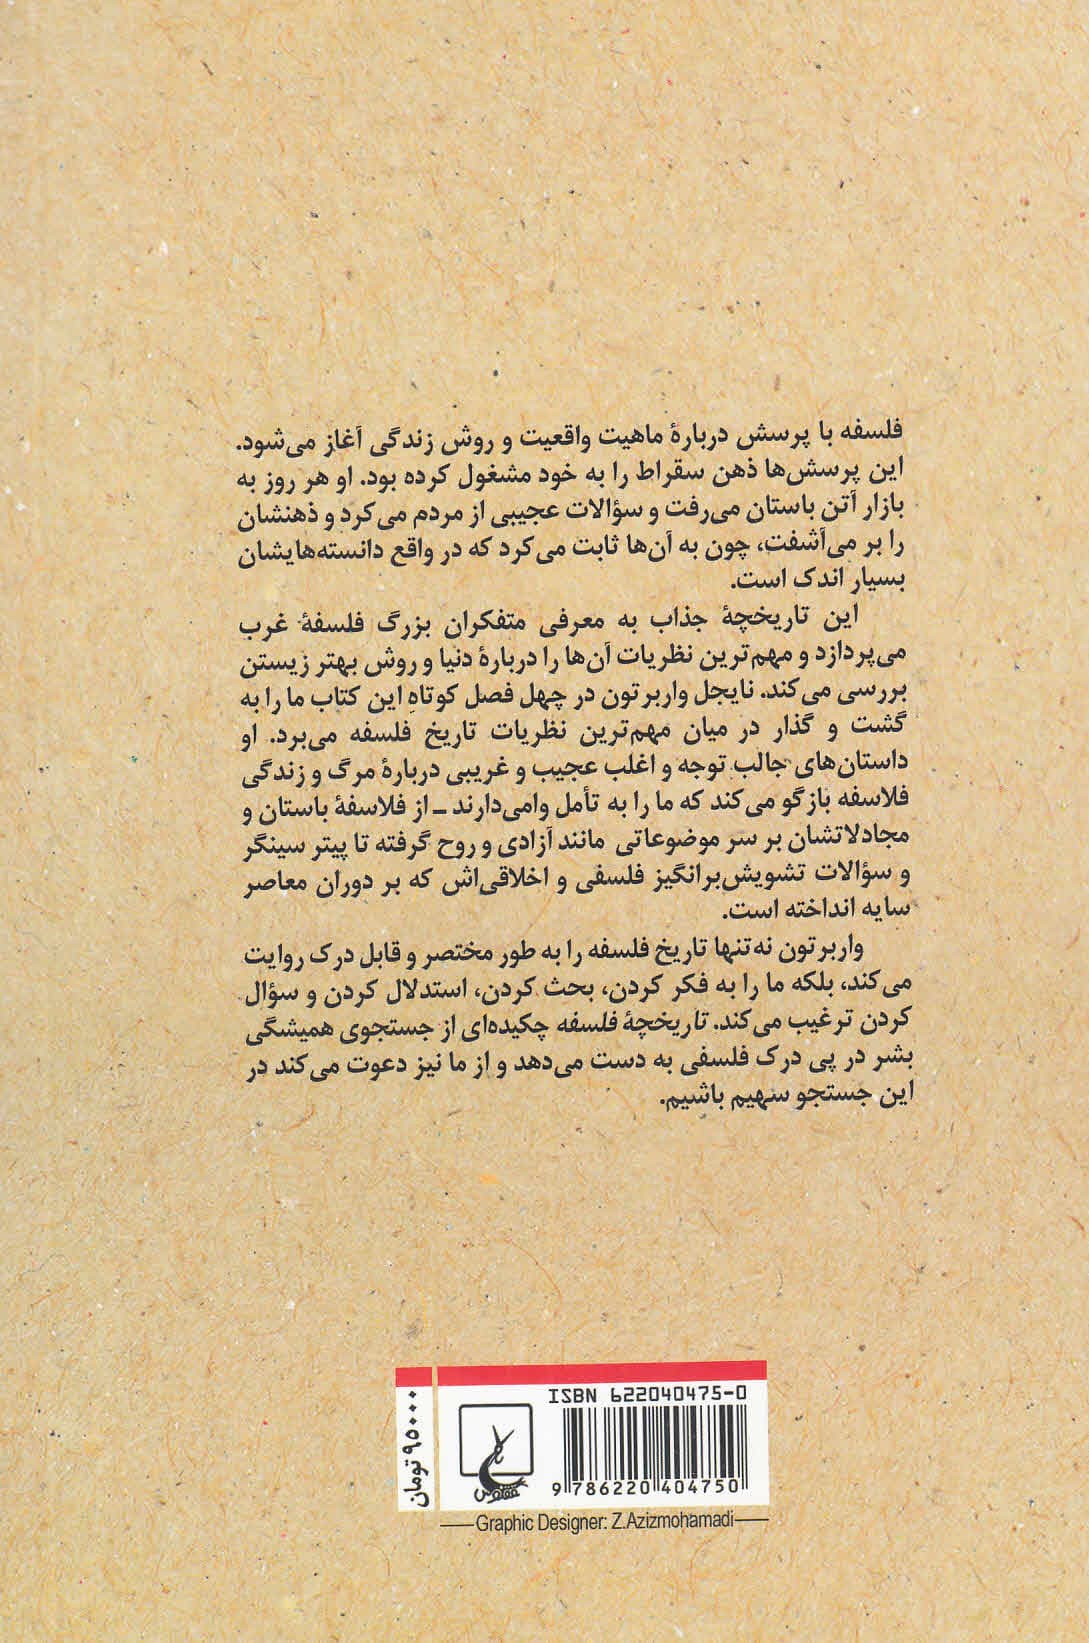 فلسفه با پرسش دربارهٔ ماهیت واقعیت و روش زندگی آغاز می‌شود.
این پرسش‌ها ذهن سقراط را به خود مشغول کرده بود. او هر روز به
بازار آتن باستان می‌رفت و سؤالات عجیبی از مردم می‌کرد و ذهنشان
را بر می‌آشفت، چون به آن‌ها ثابت می‌کرد که در واقع دانسته‌هایشان
بسیار اندک است.
این تاریخچهٔ جذاب به معرفی متفکران بزرگ فلسفهٔ غرب
می‌پردازد و مهم‌ترین نظریات آن‌ها را دربارهٔ دنیا و روش بهتر زیستن
بررسی می‌کند. نایجل واربرتون در چهل فصل کوتاهِ این کتاب ما را به
گشت و گذار در میان مهم‌ترین نظریات تاریخ فلسفه می‌برد. او
داستان‌های جالب توجه و اغلب عجیب و غریبی دربارهٔ مرگ و زندگی
فلاسفه بازگو می‌کند که ما را به تأمل وامی‌دارند ـ از فلاسفهٔ باستان و
مجادلاتشان بر سر موضوعاتی مانند آزادی و روح گرفته تا پیتر سینگر
و سؤالات تشویش‌برانگیز فلسفی و اخلاقی‌اش که بر دوران معاصر
سایه انداخته است.
واربرتون نه‌تنها تاریخ فلسفه را به طور مختصر و قابل درک روایت
می‌کند، بلکه ما را به فکر کردن، بحث کردن، استدلال کردن و سؤال
کردن ترغیب می‌کند. تاریخچهٔ فلسفه چکیده‌ای از جستجوی همیشگی
بشر در پی درک فلسفی به دست می‌دهد و از ما نیز دعوت می‌کند در
این جستجو سهیم باشیم.
ISBN 622040475-0
ققنوس
9 786220 404750
۹۵۰۰۰ تومان
Graphic Designer: Z.Azizmohamadi